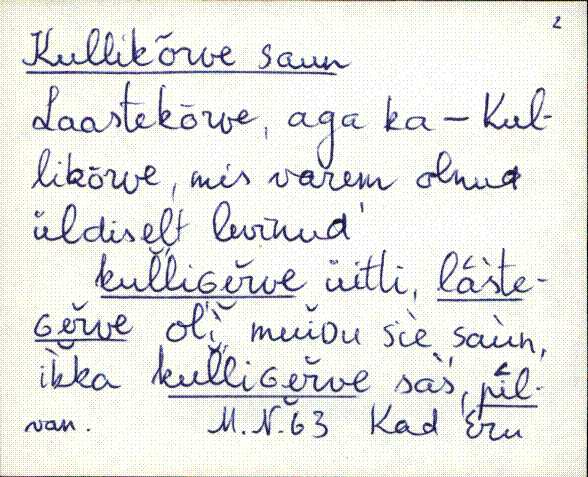 2
Kullikõrve saun
Laastekõrve, aga ka – Kul-
likõrve, mis varem olnud
üldiselt levinud
kulliGĕrve üitli, láste-
Gĕrve oli, muiDu sìe saùn,
ikka kulliGĕrve sàs, pìl-
van. M.N. 63 Kad Eru